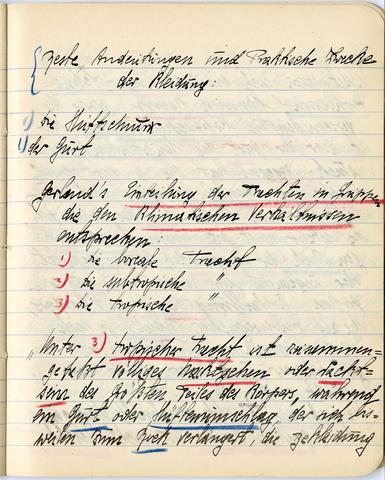 Erste Andeutungen und Praktische Zwecke
der Kleidung:
1) die Hüftschnur
1) der Gurt
Gerland's Einteilung der Trachten in Gruppen
die den Klimatischen Verhältnissen
entsprechen:
1) die boreale Tracht
2) die subtropische "
3) die tropische "
„Unter 3) tropischer Tracht ist zusammen=
gefaßt völliges Nacktgehen oder Nackt=
sein des größten Teiles des Körpers, während
ein Gurt oder Hüftenumschlag, der sich bis=
weilen zum Rock verlängert, die Bekleidung